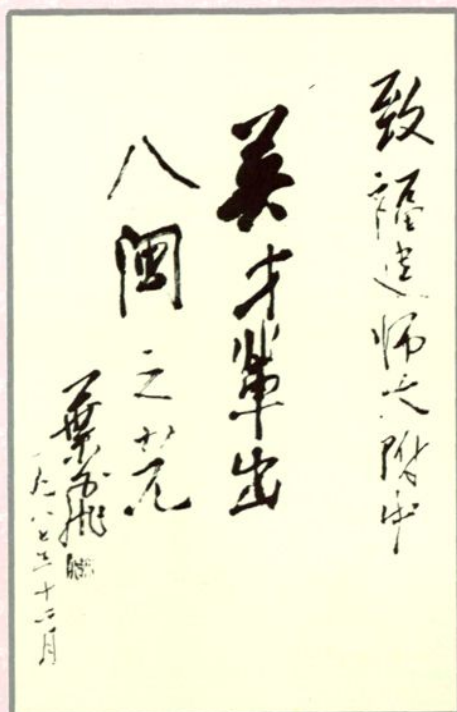 致福建师大附中
英才輩出
八闽之光
葉飞
一九八七年十二月